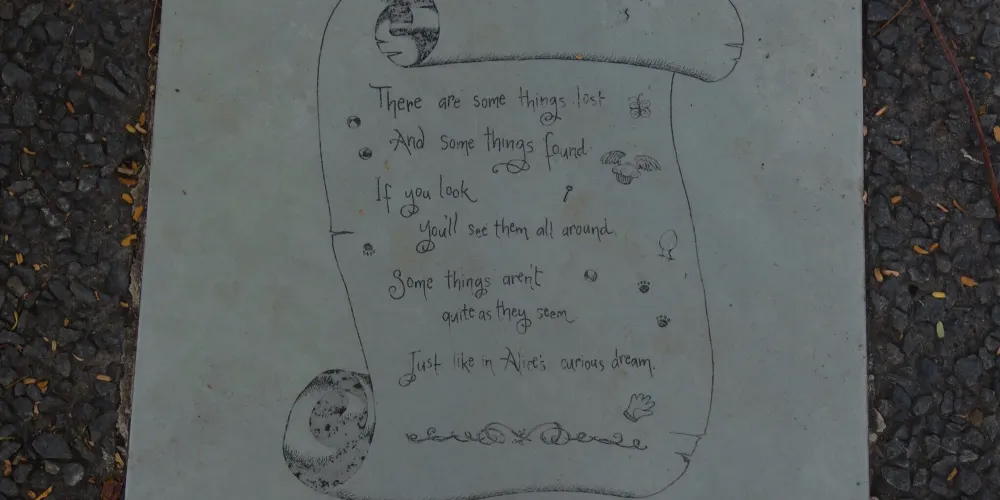 There are some things lost
And some things found
If you look
You'll see them all around.
Some things aren't
quite as they seem
Just like in Alice's curious dream.